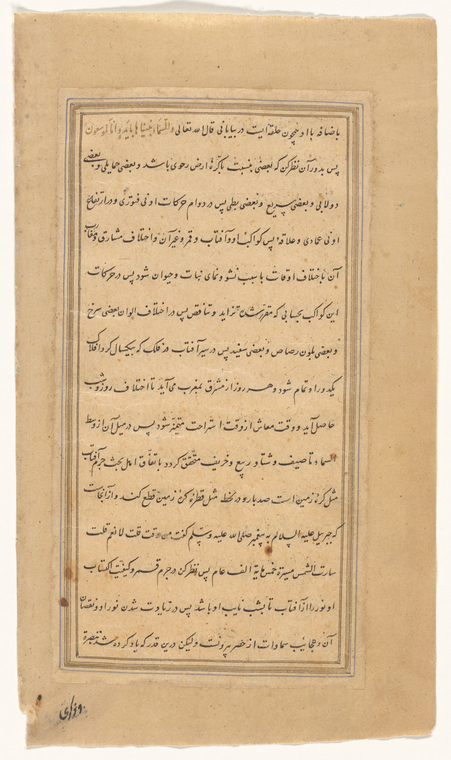 باضافه با او همچون حلقه ایست در بیابانی قال الله تعالی والسماء بنیناها باید وانا لموسعون
پس بدور آن نظر کن که بعضی بنسبت با کرهٔ ارض رحوی باشد و بعضی حمایلی و بعضی
دولابی و بعضی سریع و بعضی بطی پس در دوام حرکات او بی فتوری و در ارتفاع
او بی عمادی و علاقه پس کواکب او و آفتاب و قمر و غیر آن و اختلاف مشارق و مغارب
آن باختلاف اوقات با سبب نشو و نمای نبات و حیوان شود پس در حرکات
این کواکب بحسابی که مقرر شده تزاید و تناقص پس در اختلاف الوان بعضی سرخ
و بعضی بلون رصاص و بعضی سفید پس در سیر آفتاب در فلک که بیکسال کرد افلاک
یکدور او تمام شود و هر روز از مشرق بمغرب می آید تا اختلاف روز و شب
حاصل آید و وقت معاش از وقت استراحت متمیز شود پس در میل آن از وسط
السماء تا صیف و شتا و ربیع و خریف متحقق کردد باتفاق اهل بحث جرم آفتاب
مثل کرهٔ زمین است صد بار و در لحظه مثل قطر کرهٔ زمین قطع کند و از آنجاست
که جبریل علیه السلام به پیغمبر صلی الله علیه وسلم کفت من وقت قلت لا نعم قلت
سارت الشمس مسیرة خمسمایة الف عام پس نظر کن در جرم قمر و کیفیت اکتساب
او نور را از آفتاب تا بشب نایب او باشد پس در زیادت شدن نور او و نقصان
آن و عجایب سماوات از حصر بیرونست ولیکن درین قدر که یاد کرده شد تبصرة